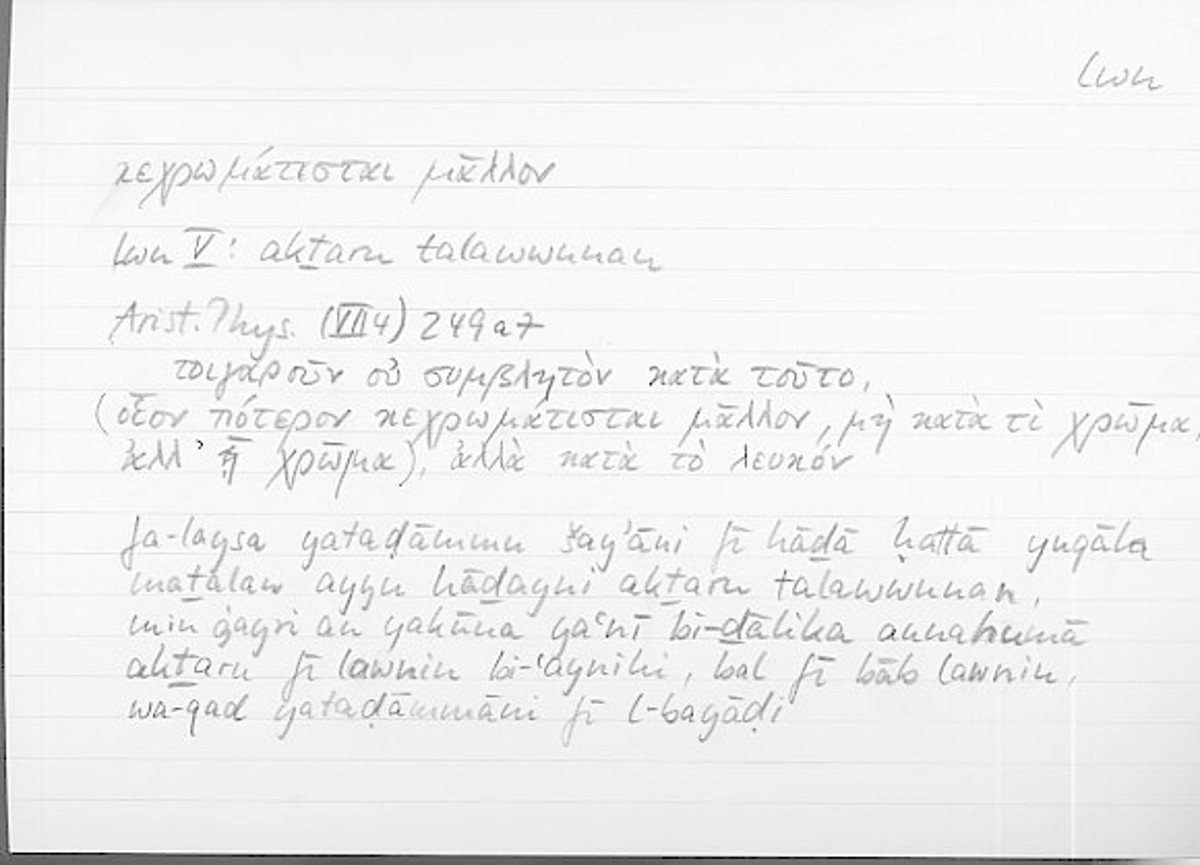 lwn
κεχρωμάτισται μᾶλλον
lwn V: akṯaru talawwunan
Arist. Phys. (VII 4) 249a7
τοιγαροῦν οὐ συμβλητὸν κατὰ τοῦτο,
(οἷον πότερον κεχρωμάτισται μᾶλλον, μὴ κατὰ τὶ χρῶμα,
ἀλλ’ ᾗ χρῶμα), ἀλλὰ κατὰ τὸ λευκόν
fa-laysa yataḍāmmu šay’āni fī hāḏā ḥattā yuqāla
maṯalan ayyu hāḏayni akṯaru talawwunan,
min ġayri an yakūna yaʿnī bi-ḏālika annahumā
akṯaru fī lawnin bi-ʿaynihi, bal fī bāb lawnin,
wa-qad yataḍāmmāni fī l-bayāḍi